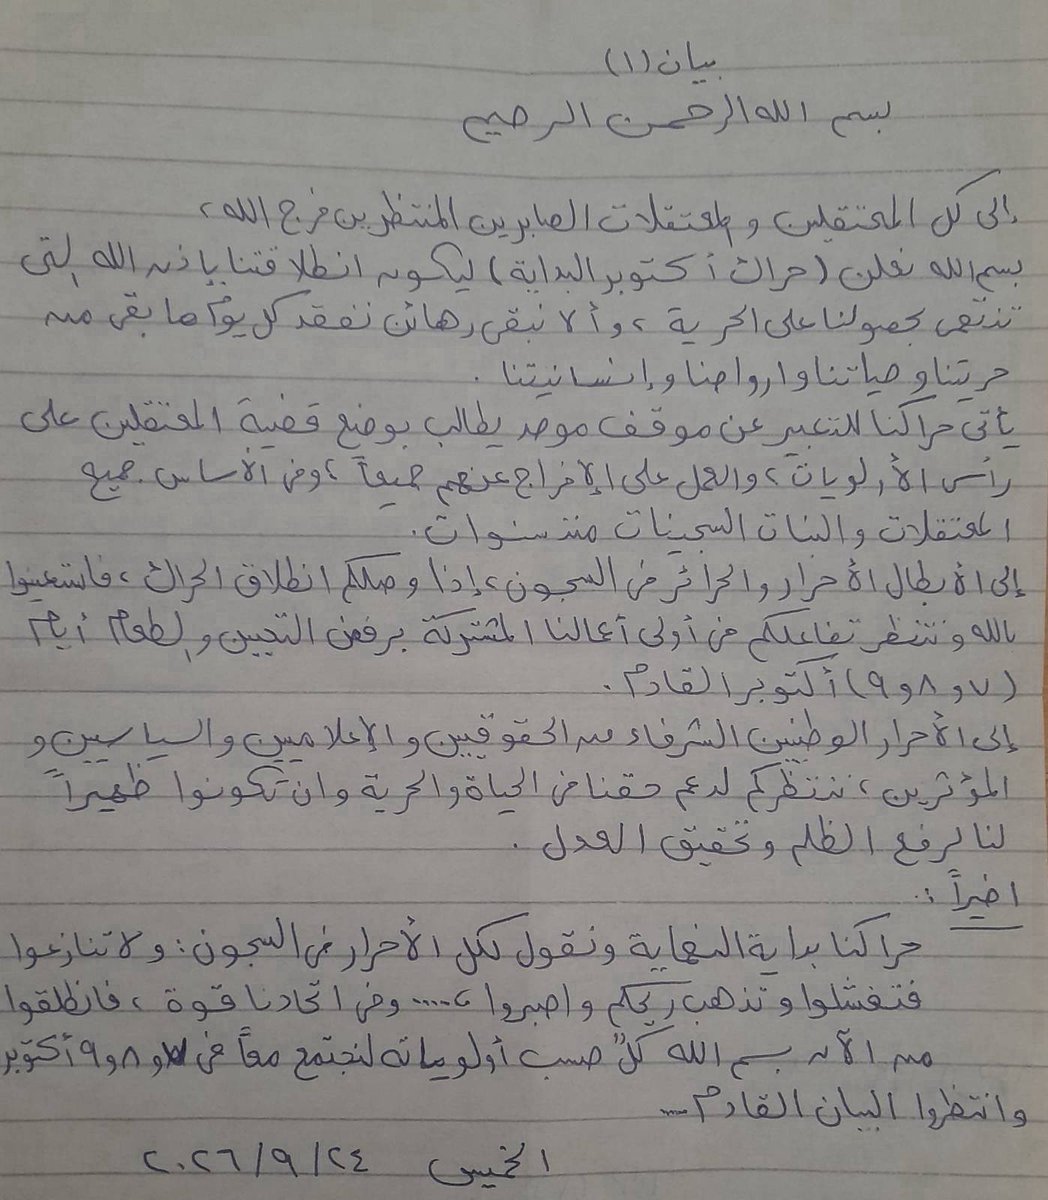 بيان (١)
بسم الله الرحمن الرحيم
إلى كل المعتقلين والمعتقلات الصابرين المنتظرين فرج الله،
بسم الله نعلن (حراك أكتوبر البداية) ليكون انطلاقتنا بإذن الله التي
تنتهي بحصولنا على الحرية، وألا نبقى رهائن نفقد كل يوم ما بقى من
حريتنا وحياتنا وارواحنا وإنسانيتنا.
يأتي حراكنا للتعبير عن موقف موحد يطالب بوضع قضية المعتقلين على
رأس الأولويات، والعمل على الإفراج عنهم جميعاً، وفي الأساس جميع
المعتقلات والبنات السجينات منذ سنوات.
إلى الأبطال الأحرار والحرائر في السجون، إذا وصلكم انطلاق الحراك، فاستعينوا
بالله وننتظر تفاعلكم في أولى أعمالنا المشتركة برفض التعيين والطعام أيام
(٧ و ٨ و ٩) أكتوبر القادم.
إلى الأحرار الوطنيين الشرفاء من الحقوقيين والإعلاميين والسياسيين و
المؤثرين، ننتظركم لدعم حقنا في الحياة والحرية وان تكونوا ظهيراً
لنا لرفع الظلم وتحقيق العدل.
اخيراً:
حراكنا بداية النهاية ونقول لكل الأحرار في السجون: ولا تنازعوا
فتفشلوا وتذهب ريحكم واصبروا،.... وفي اتحادنا قوة، فانطلقوا
من الآن بسم الله كلٌ حسب أولوياته لنجتمع معاً في ٧ و ٨ و ٩ أكتوبر
وانتظروا البيان القادم...
الخميس ٢٠٢٦/٩/٢٤